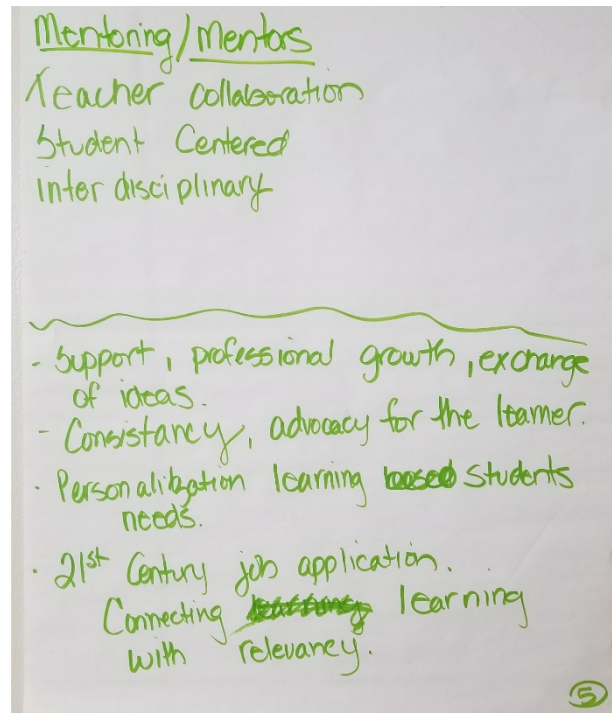 Mentoring/Mentors
Teacher collaboration
Student Centered
Interdisciplinary
- Support, professional growth, exchange
of ideas.
- Consistancy, advocacy for the learner.
· Personalization learning based students
needs.
· 21st Century job application.
Connecting learning
with relevancy.
5